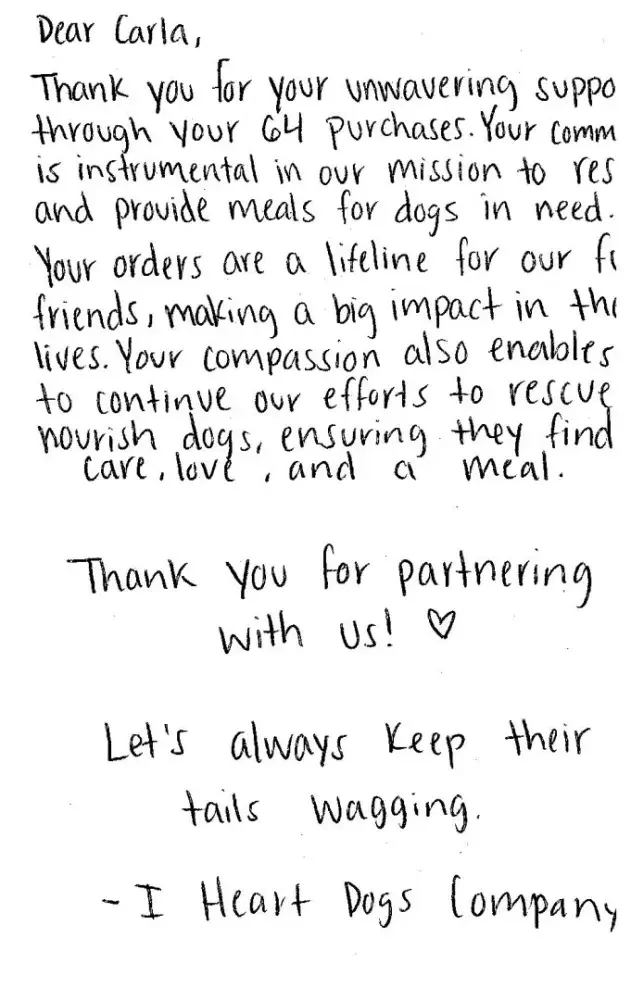 Dear Carla,
Thank you for your unwavering suppo
through your 64 purchases. Your comm
is instrumental in our mission to res
and provide meals for dogs in need.
Your orders are a lifeline for our fu
friends, making a big impact in the
lives. Your compassion also enables
to continue our efforts to rescue
nourish dogs, ensuring they find
care, love, and a meal.
Thank you for partnering
with us! ♡
Let's always keep their
tails wagging.
- I Heart Dogs Company